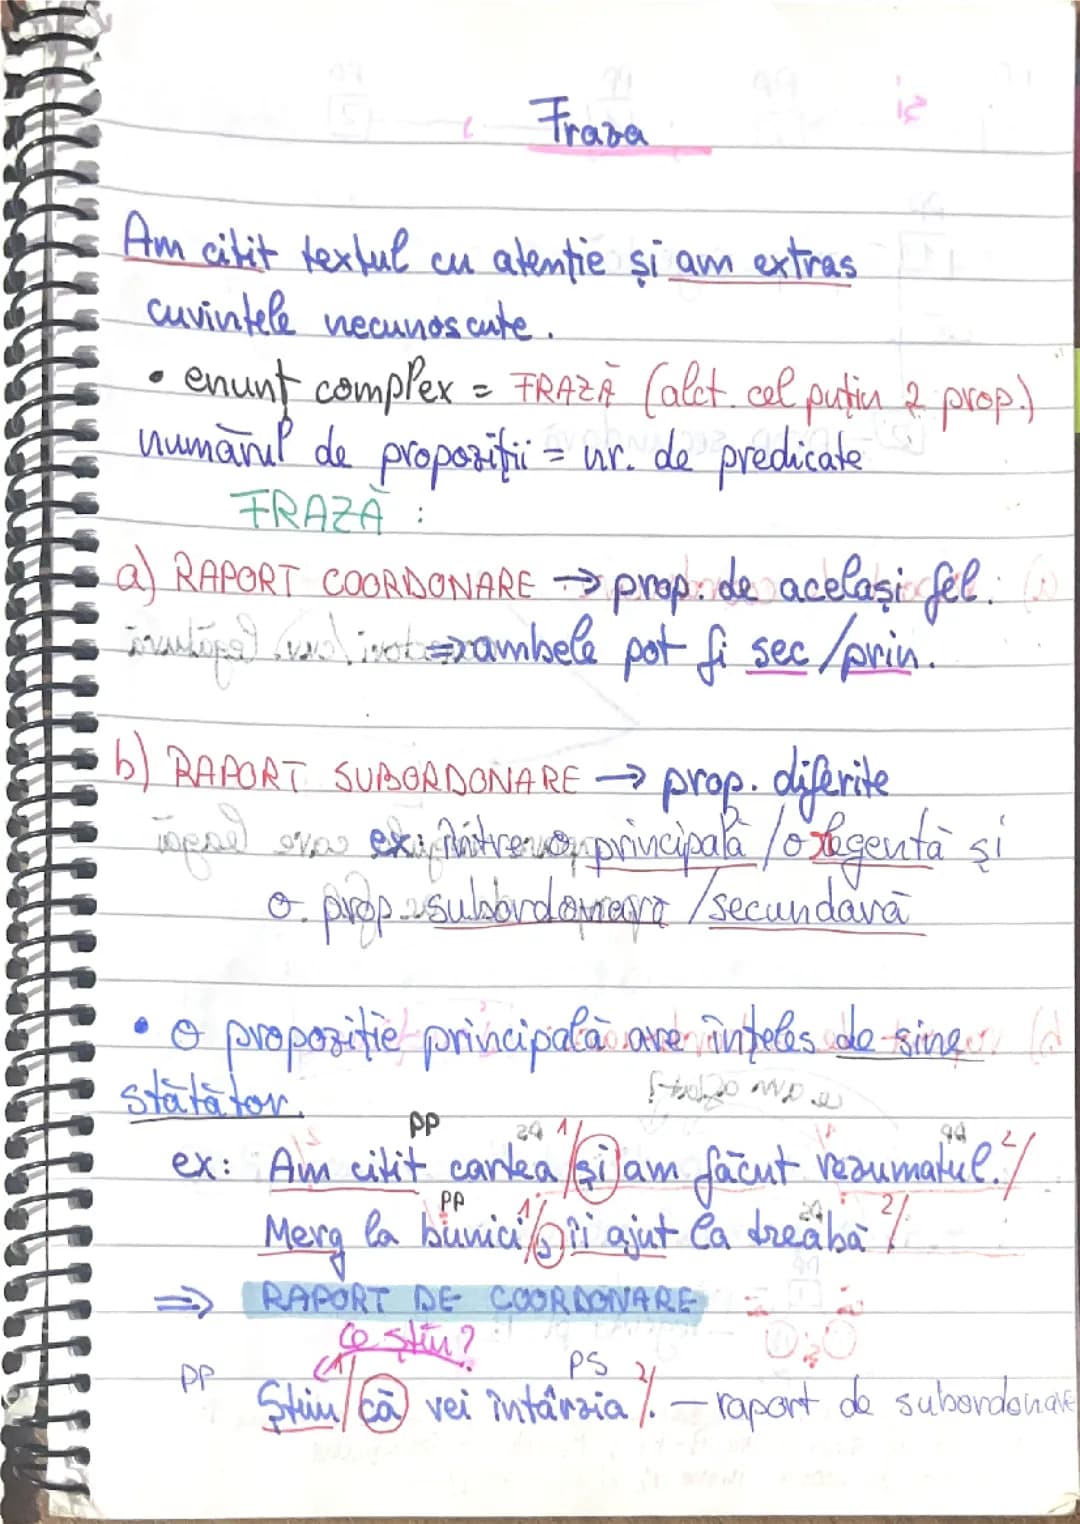 Fraza
Am citit textul cu atenție și am extras
cuvintele necunoscute.
• enunț complex = FRAZĂ (alct. cel puțin 2 prop.)
numărul de propoziții = nr. de predicate
FRAZĂ :
a) RAPORT COORDONARE → prop. de același fel.
⇒ ambele pot fi sec/prin.
b) RAPORT SUBORDONARE → prop. diferite
ex: între o principală / o regentă și
o prop. subordonară / secundară
• O propoziție principală are înțeles de sine
stătător.
PP 1/ 2/
ex: Am citit cartea / și am făcut rezumatul. /
PP 1/ 2/
Merg la bunici / și îi ajut la treabă /
⇒ RAPORT DE COORDONARE
Ce știu?
PP 1/ PS 2/
Știu / că vei întârzia /. – raport de subordonare